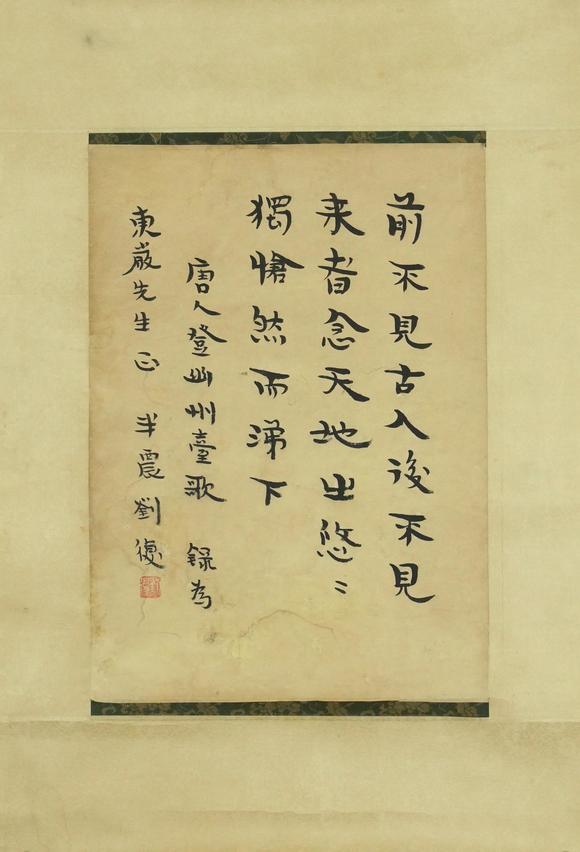 前不見古人後不見
来者念天地之悠〻
獨愴然而涕下
唐人登幽州臺歌 録為
東巖先生正 半農劉復